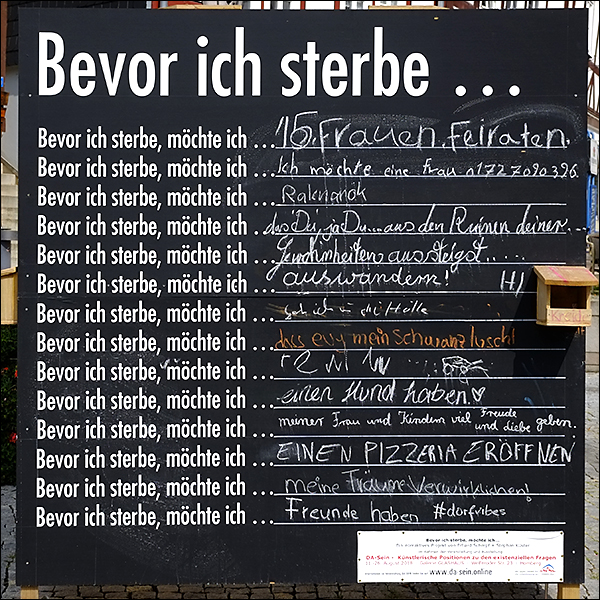 Bevor ich sterbe ...
Bevor ich sterbe, möchte ich ... 16. Frauen. Feiraten.
Bevor ich sterbe, möchte ich ... Ich möchte eine Frau 01727090396
Bevor ich sterbe, möchte ich ...
Bevor ich sterbe, möchte ich ... das Du, ja Du... aus den Ruinen deiner...
Bevor ich sterbe, möchte ich ... Gewohnheiten aussteigst.....
Bevor ich sterbe, möchte ich ... auswandern! HJ
Bevor ich sterbe, möchte ich ...
Bevor ich sterbe, möchte ich ... dass evy mein Schwanz luscht
Bevor ich sterbe, möchte ich ...
Bevor ich sterbe, möchte ich ... einen Hund haben ♡
Bevor ich sterbe, möchte ich ... meiner Frau und Kindern viel Freude und Liebe geben.
Bevor ich sterbe, möchte ich ... EINEN PIZZERIA ERÖFFNEN
Bevor ich sterbe, möchte ich ... meine Träume Verwirklichen!
Bevor ich sterbe, möchte ich ... Freunde haben #dorfvibes
Kreide
Bevor ich sterbe, möchte ich...
DA-Sein - Künstlerische Positionen zu den existenziellen Fragen
www.da-sein.online